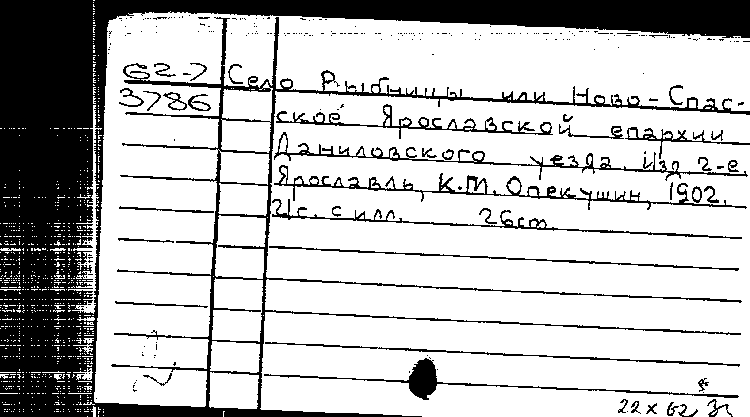 62-7 Село Рыбницы или Ново-Спас-
3786 ское Ярославской епархии
Даниловского уезда. Изд. 2-е.
Ярославль, К.М. Опекушин, 1902.
21с. с илл. 26cm.
22 x 62